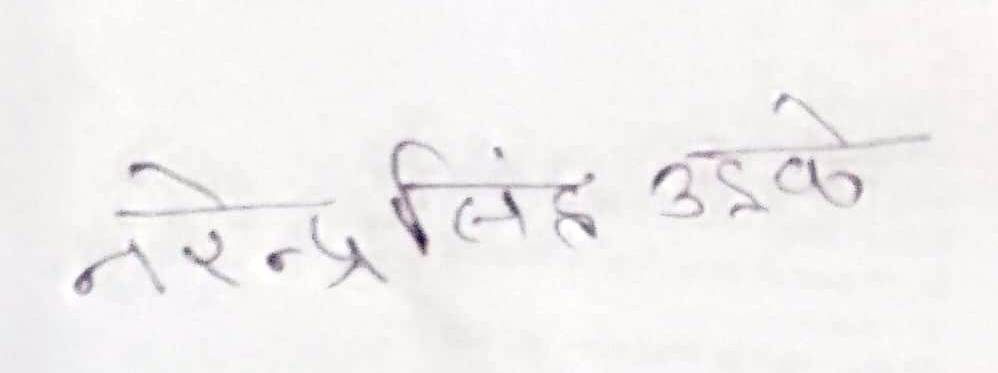 नरेन्द्र सिंह उइके